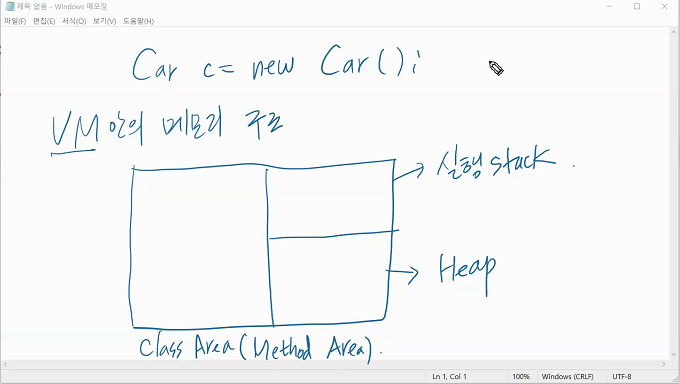 제목 없음 - Windows 메모장
파일(F) 편집(E) 서식(O) 보기(V) 도움말(H)
Car c = new Car();
VM 안의 메모리 구조
실행 stack.
Heap
Class Area (Method Area).
Ln 1, Col 1 100% Windows (CRLF) UTF-8